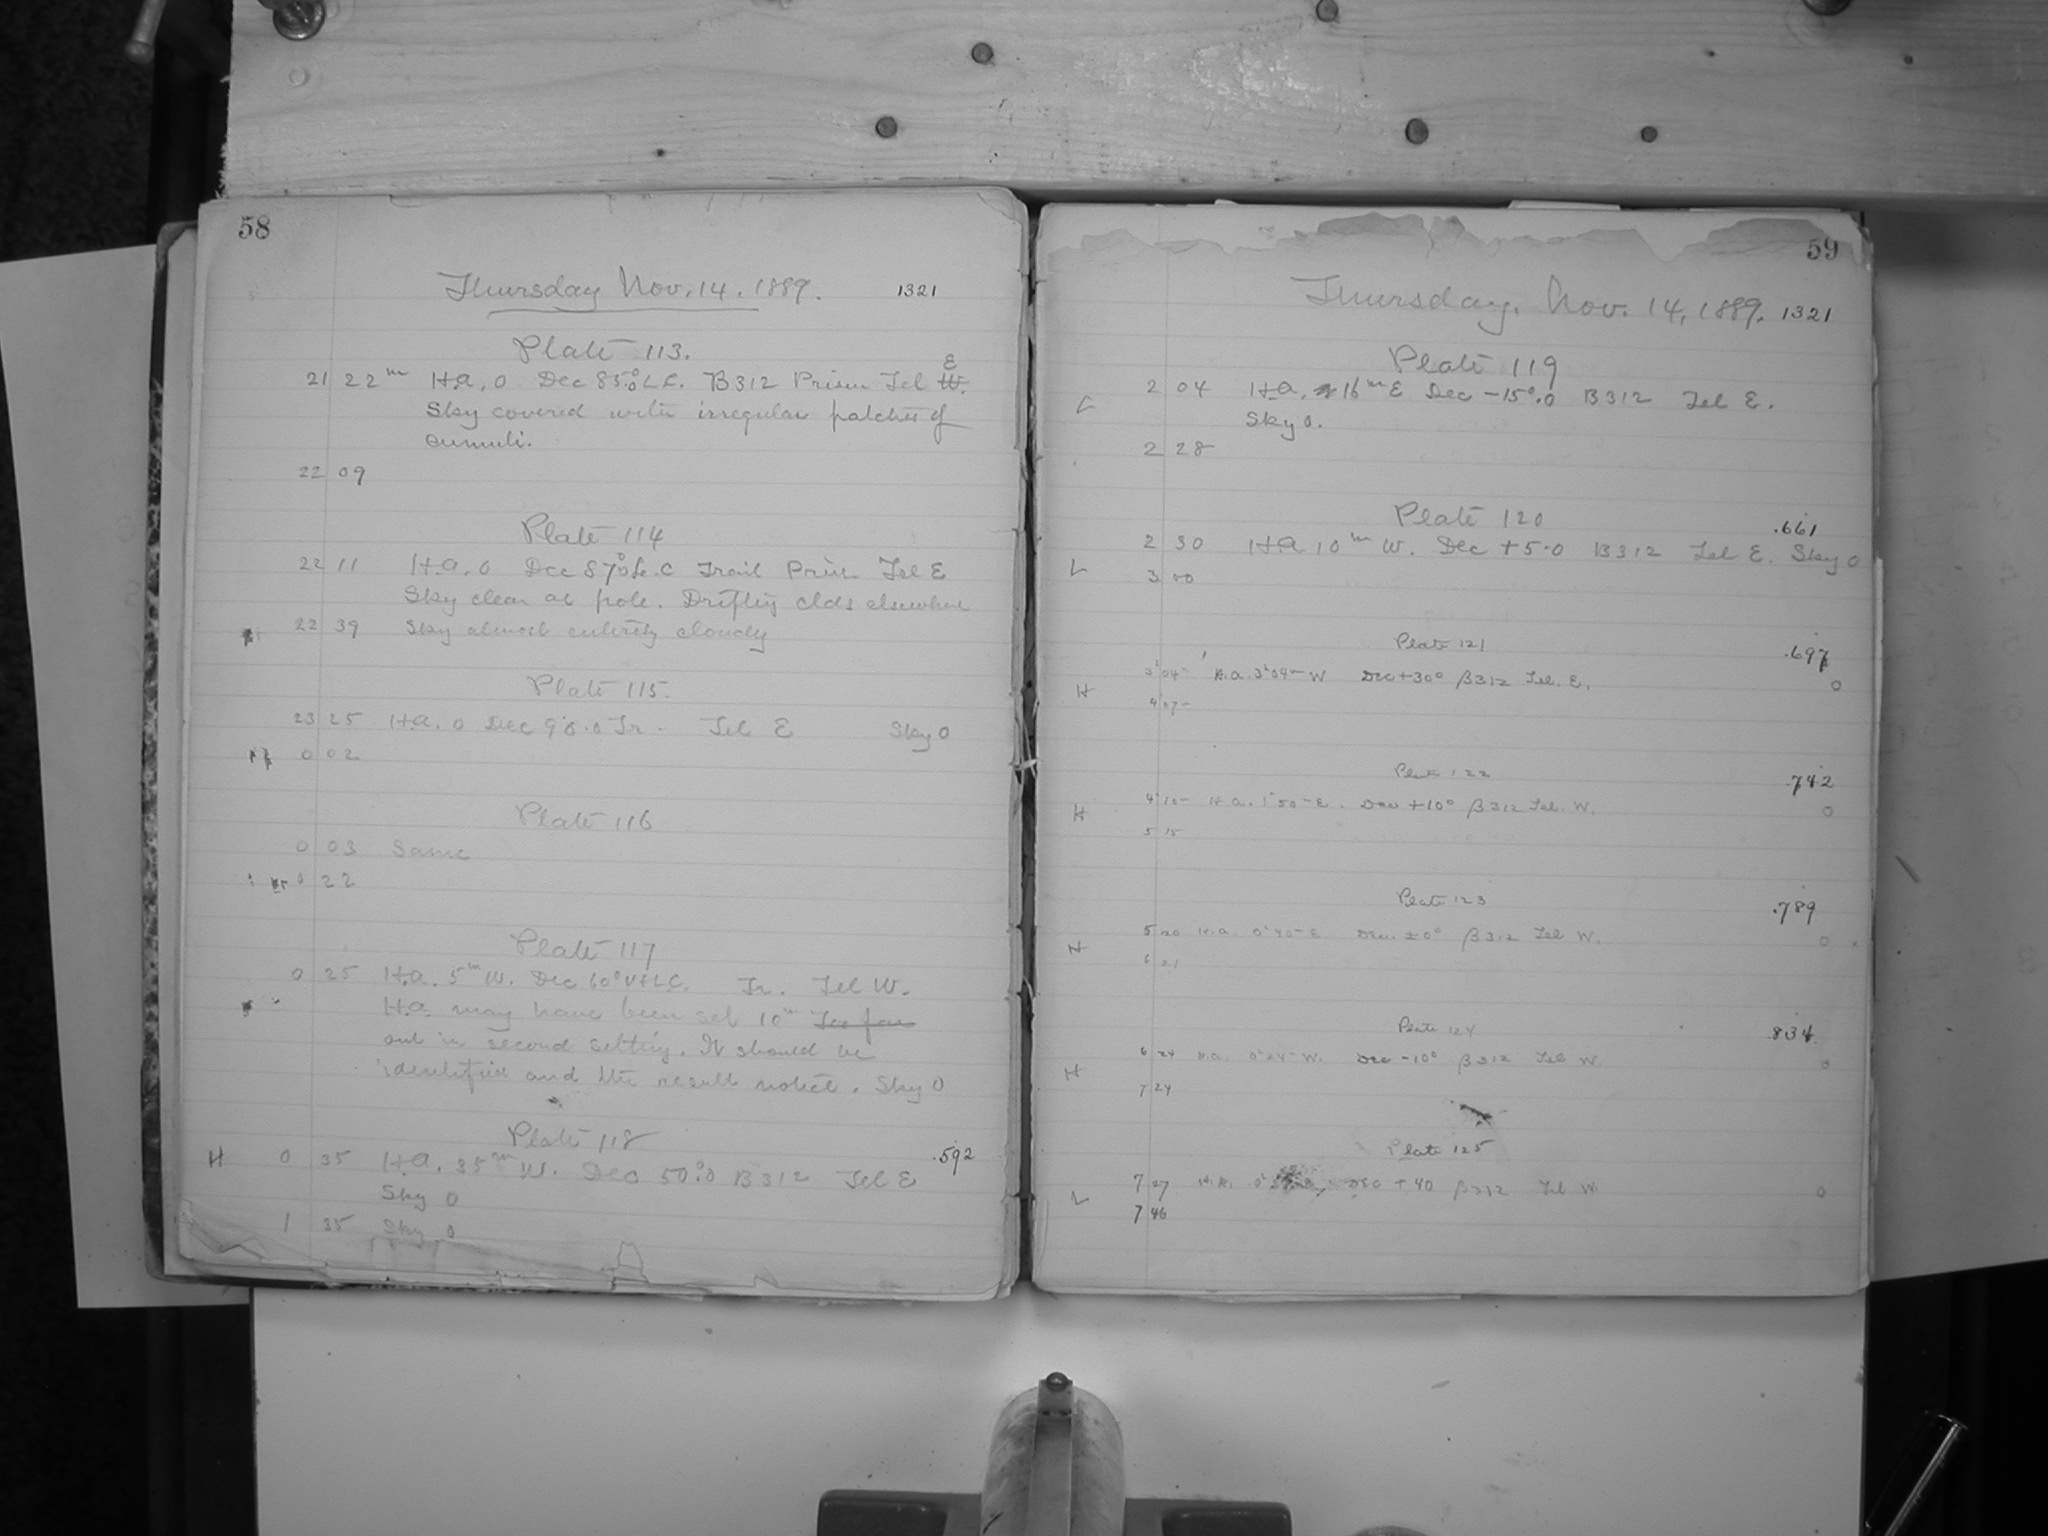 58
Thursday Nov. 14. 1889. 1321
Plate 113.
21 22m H.a. 0 Dec 85°.0 L.C. B312 Prism Tel W. E
Sky covered with irregular patches of
cumuli.
22 09
Plate 114
22 11 H.a. 0 Dec 87°.0 L.C Trail Prism Tel E
Sky clear at pole. Drifting clds elsewhere
22 39 Sky almost entirely cloudy
Plate 115.
23 25 H.a. 0 Dec 90.0 Tr. Tel E Sky 0
0 02
Plate 116
0 03 Same
0 22
Plate 117
0 25 H.a. 5m W. Dec 60° U+L.C. Tr. Tel W.
H.a. may have been set 10m Too far
out in second setting. It should be
identified and the result noted. Sky 0
Plate 118
H 0 35 H.a. 35m W. Dec 50°.0 B312 Tel E .592
Sky 0
1 35 Sky 0
59
Thursday. Nov. 14, 1889. 1321
Plate 119
2 04 H.a. 16m E Dec -15°.0 B312 Tel E.
L Sky 0.
2 28
Plate 120 .661
2 30 H.a. 10m W. Dec +5.0 B312 Tel E. Sky 0
L 3 00
Plate 121 .697
3 04 H.a. 3 04 W Dec +30° β312 Tel. E. 0
H 4 07
Plate 122 .742
H 4 10 H.a. 1 50 E. Dec +10° β312 Tel. W. 0
5 15
Plate 123 .789
H 5 20 H.a. 0 40 E. Dec. ±0° β312 Tel W. 0
6 21
Plate 124 .834
6 24 H.a. 0 24 W. Dec -10° β312 Tel W. 0
H 7 24
Plate 125
7 27 H.A. 0 Dec +40 β312 Tel W 0
L 7 46